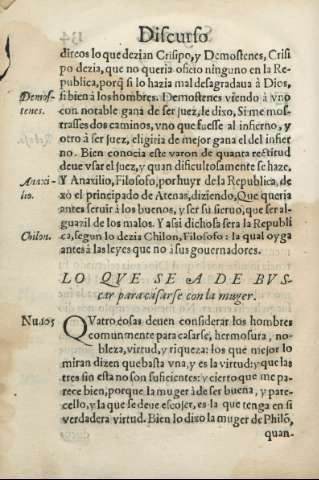 Discurso
direos lo que dezian Crisipo, y Demostenes, Crisi
po dezia, que no queria oficio ninguno en la Re-
publica, porq̃ si lo hazia mal desagradaua à Dios,
si bien à los hombres. Demostenes viendo à vno
Demos-
tenes.
con notable gana de ser juez, le dixo, Si me mos-
trasses dos caminos, vno que fuesse al infierno, y
otro à ser juez, eligiria de mejor gana el del infier
no. Bien conocia este varon de quanta rectitud
deue vsar el juez, y quan dificultosamente se haze.
Anaxi-
lio.
Y Anaxilio, Filosofo, por huyr de la Republica, de
xò el principado de Atenas, diziendo, Que queria
antes seruir à los buenos, y ser su sieruo, que ser al-
guazil de los malos. Y assi dichosa sera la Republi
Chilon.
ca, segun lo dezia Chilon, Filosofo: la qual oyga
antes à las leyes que no à sus gouernadores.
LO QVE SE A DE BVS-
car para casarse con la muger.
Nu.105
QVatro cosas deuen considerar los hombres
comunmente para casarse, hermosura, no-
bleza, virtud, y riqueza: los que mejor lo
miran dizen que basta vna, y es la virtud; y que las
tres sin esta no son suficientes: y cierto que me pa-
rece bien, porque la muger à de ser buena, y pare-
cello, y la que se deue escojer, es la que tenga en si
verdadera virtud. Bien lo dixo la muger de Philõ,
quan-